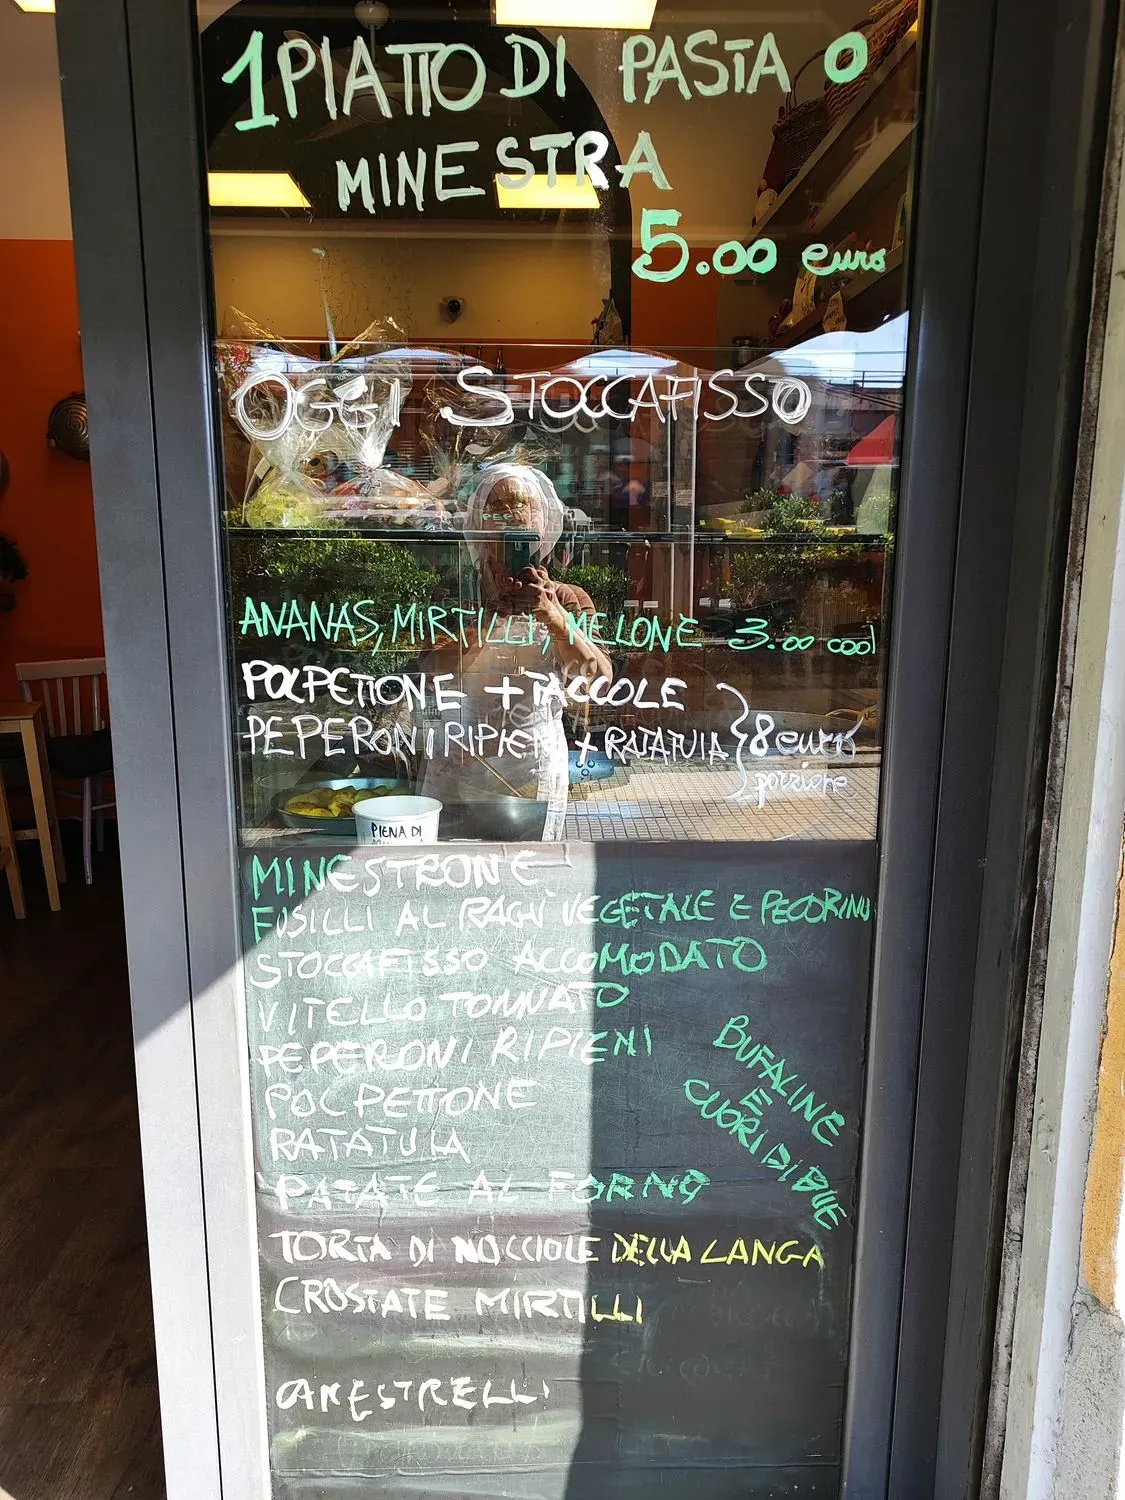 1 PIATTO DI PASTA O
MINESTRA
5.00 euro
OGGI STOCCAFISSO
ANANAS, MIRTILLI, MELONE 3.00 cad
POLPETTONE + TACCOLE
PEPERONI RIPIENI + RATATUIA } 8 euro
porzione
PIENA DI
MINESTRONE
FUSILLI AL RAGÙ VEGETALE E PECORINO
STOCCAFISSO ACCOMODATO
VITELLO TONNATO
PEPERONI RIPIENI
POLPETTONE
RATATUIA
PATATE AL FORNO
BUFALINE
E
CUORI DI BUE
TORTA DI NOCCIOLE DELLA LANGA
CROSTATE MIRTILLI
CANESTRELLI